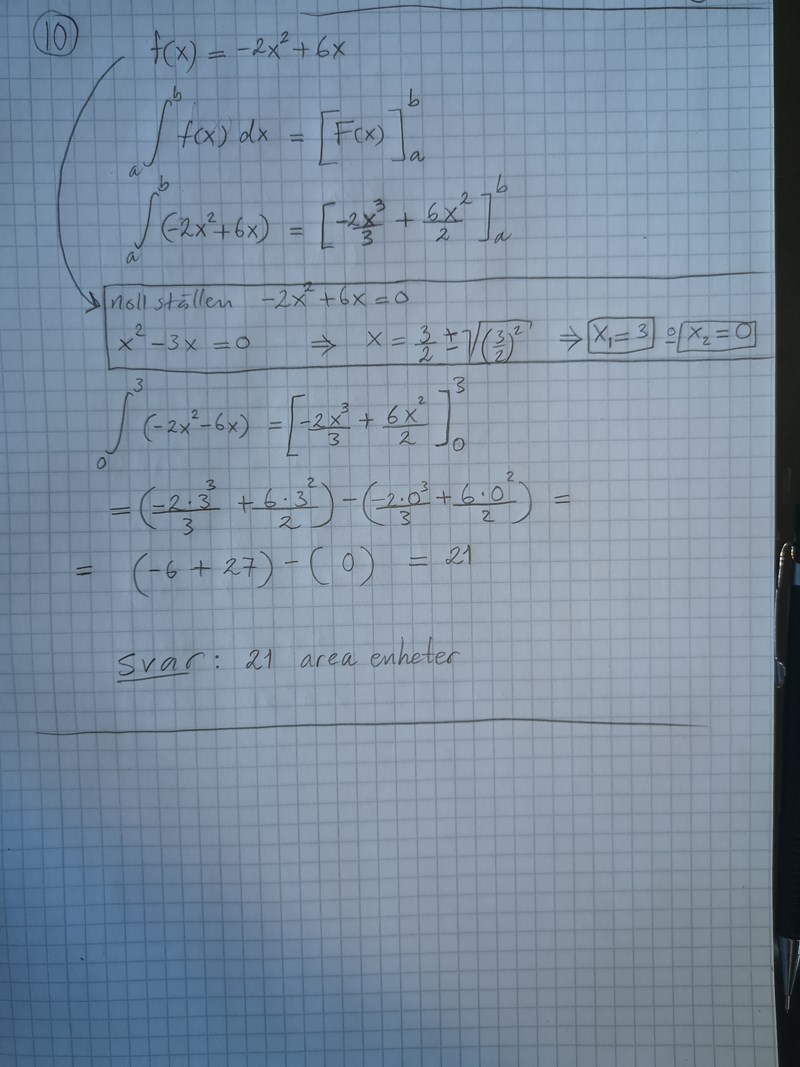 10
f(x) = -2x² + 6x
∫ₐᵇ f(x) dx = [F(x)]ₐᵇ
∫ₐᵇ (-2x²+6x) = [-2x³/3 + 6x²/2]ₐᵇ
noll ställen -2x² + 6x = 0
x² - 3x = 0 ⇒ x = 3/2 ± √(3/2)² ⇒ x₁ = 3 o x₂ = 0
∫₀³ (-2x²-6x) = [-2x³/3 + 6x²/2]₀³
= (-2·3³/3 + 6·3²/2) - (-2·0³/3 + 6·0²/2) =
= (-6 + 27) - (0) = 21
Svar: 21 area enheter